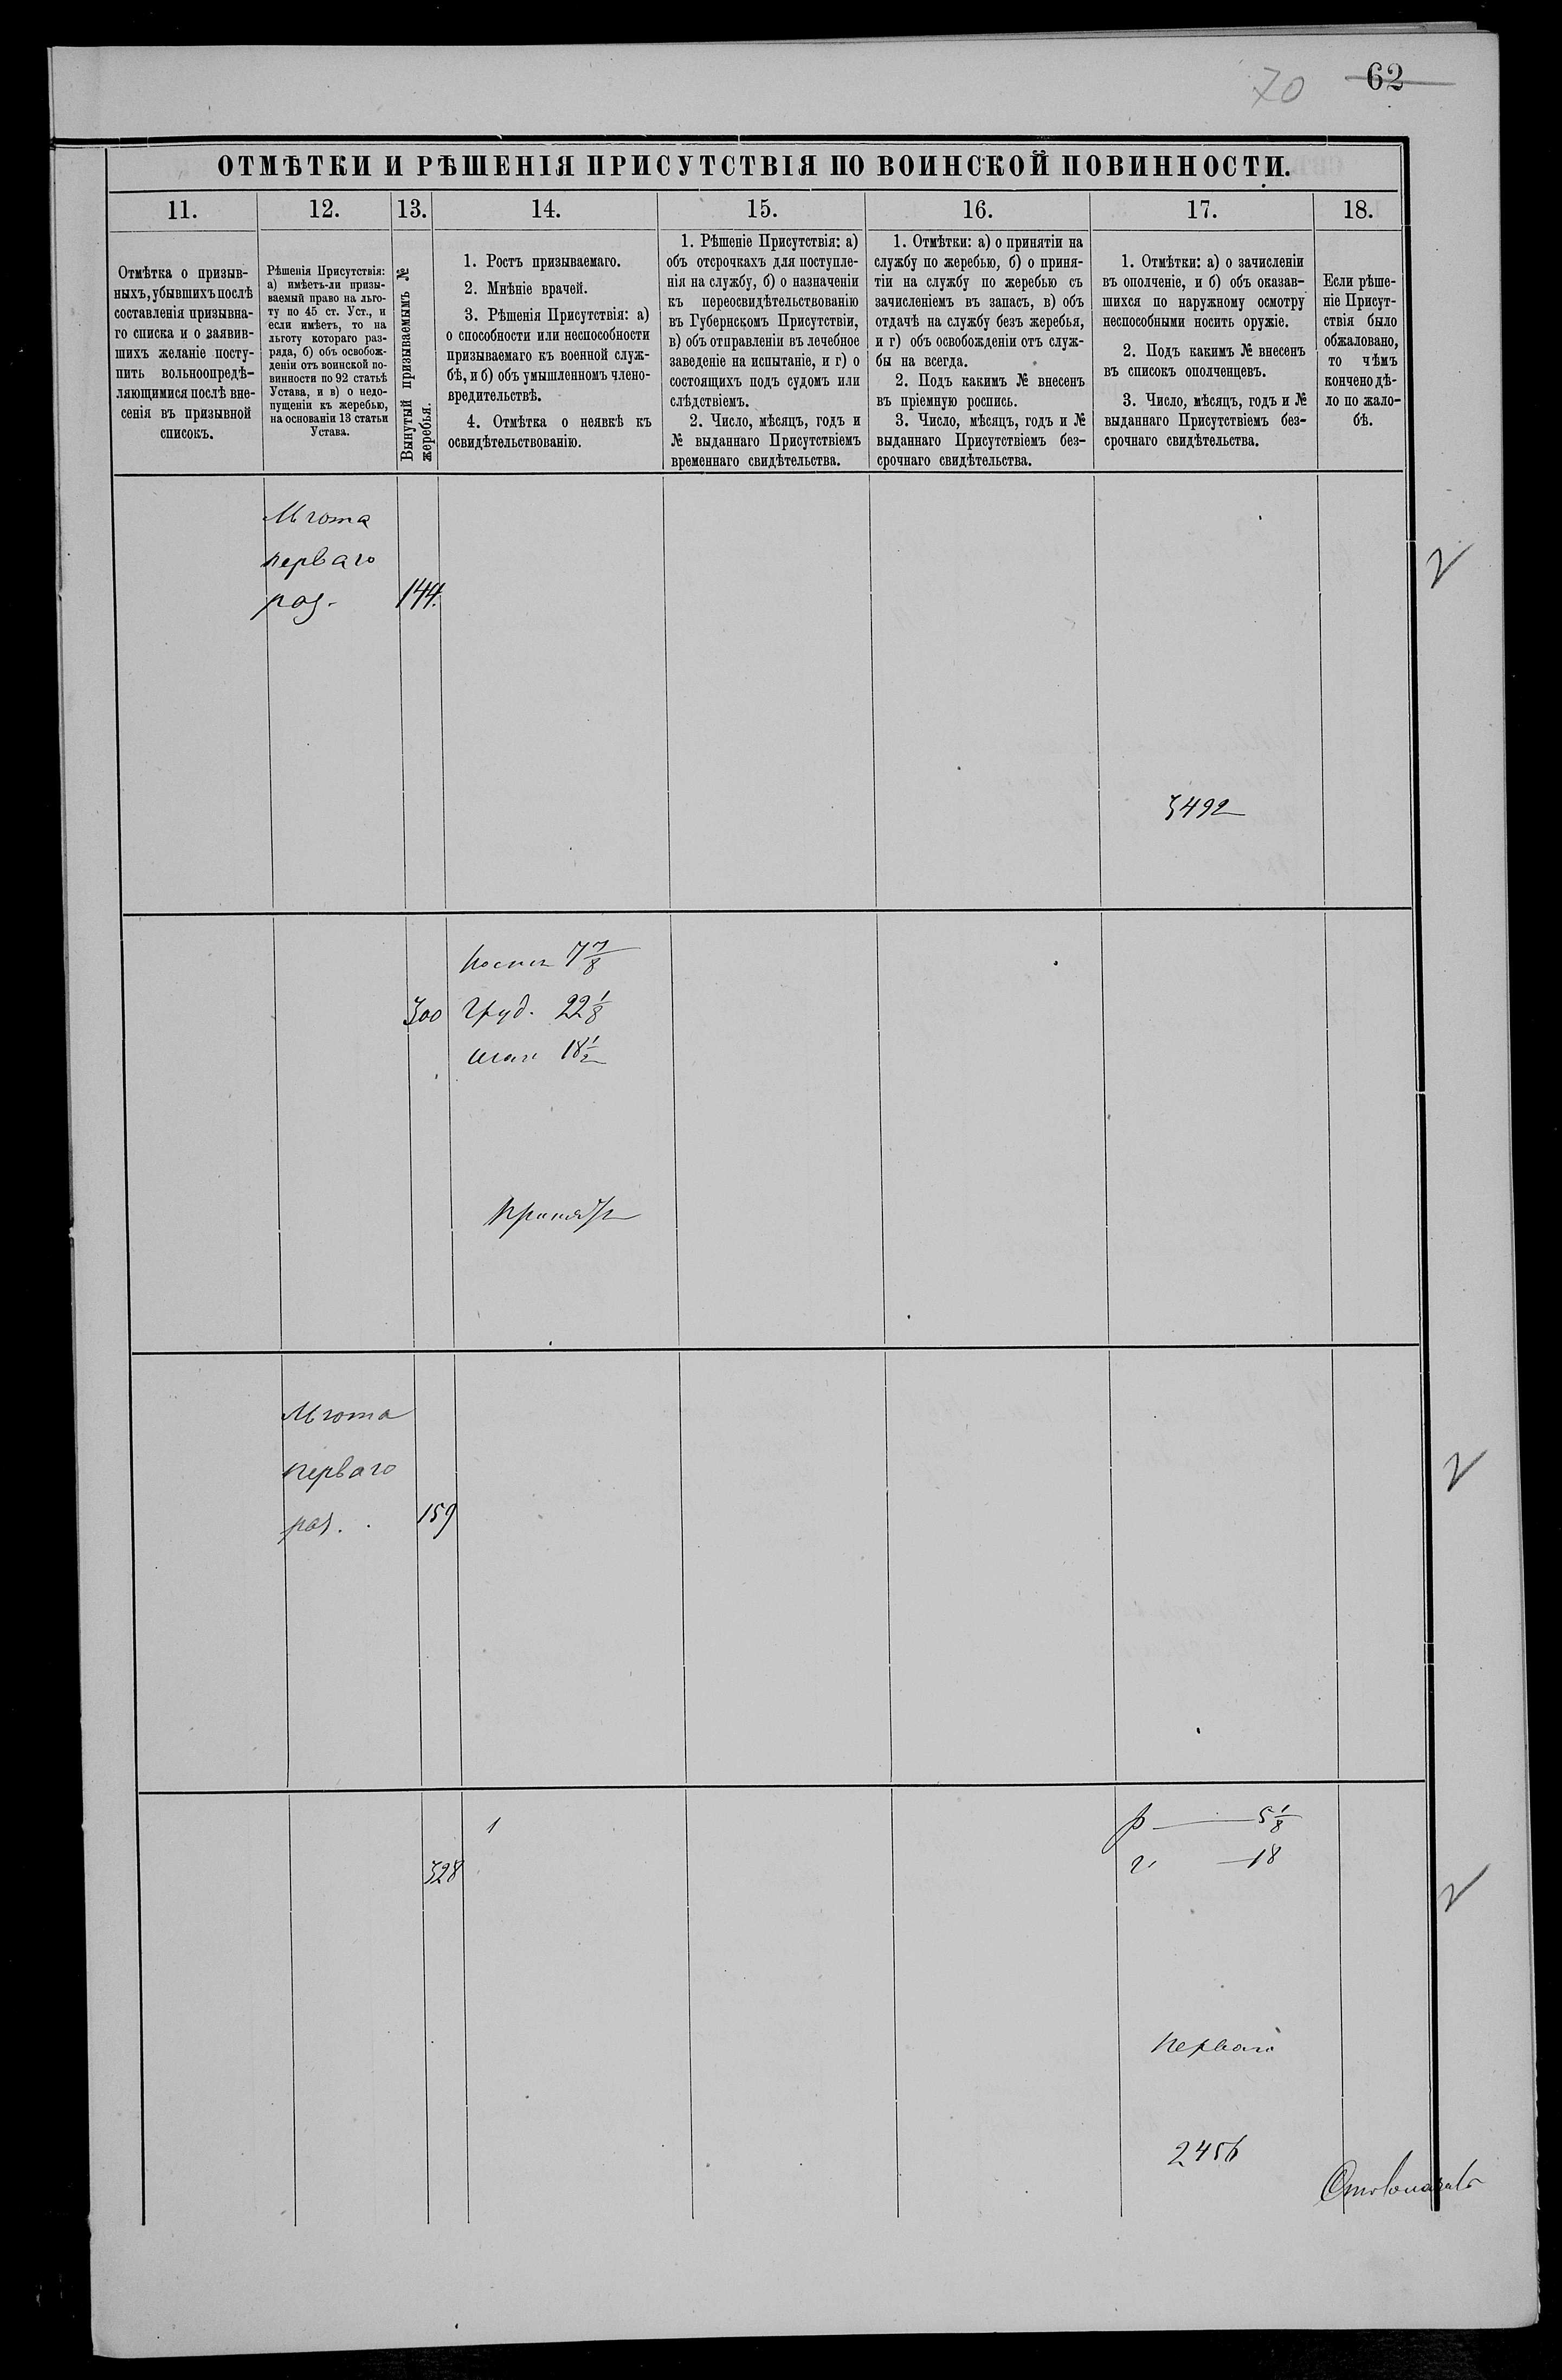 70 62
ОТМѢТКИ И РѢШЕНІЯ ПРИСУТСТВІЯ ПО ВОИНСКОЙ ПОВИННОСТИ.
11.
12.
13.
14.
15.
16.
17.
18.
Отмѣтка о призыв-
ныхъ, убывшихъ послѣ
составленія призывна-
го списка и о заявив-
шихъ желаніе посту-
пить вольноопредѣ-
ляющимися послѣ вне-
сенія въ призывной
списокъ.
Рѣшенія Присутствія:
а) имѣетъ-ли призы-
ваемый право на льго-
ту по 45 ст. Уст., и
если имѣетъ, то на
льготу котораго раз-
ряда, б) объ освобож-
деніи отъ воинской по-
винности по 92 статьѣ
Устава, и в) о недо-
пущеніи къ жеребью,
на основаніи 13 статьи
Устава.
Вынутый призываемымъ №
жеребья.
1. Ростъ призываемаго.
2. Мнѣніе врачей.
3. Рѣшенія Присутствія: а)
о способности или неспособности
призываемаго къ военной служ-
бѣ, и б) объ умышленномъ члено-
вредительствѣ.
4. Отмѣтка о неявкѣ къ
освидѣтельствованію.
1. Рѣшеніе Присутствія: а)
объ отсрочкахъ для поступле-
нія на службу, б) о назначеніи
къ переосвидѣтельствованію
въ Губернскомъ Присутствіи,
в) объ отправленіи въ лечебное
заведеніе на испытаніе, и г) о
состоящихъ подъ судомъ или
слѣдствіемъ.
2. Число, мѣсяцъ, годъ и
№ выданнаго Присутствіемъ
временнаго свидѣтельства.
1. Отмѣтки: а) о принятіи на
службу по жеребью, б) о приня-
тіи на службу по жеребью съ
зачисленіемъ въ запасъ, в) объ
отдачѣ на службу безъ жеребья,
и г) объ освобожденіи отъ служ-
бы на всегда.
2. Подъ какимъ № внесенъ
въ пріемную роспись.
3. Число, мѣсяцъ, годъ и №
выданнаго Присутствіемъ без-
срочнаго свидѣтельства.
1. Отмѣтки: а) о зачисленіи
въ ополченіе, и б) объ оказав-
шихся по наружному осмотру
неспособными носить оружіе.
2. Подъ какимъ № внесенъ
въ списокъ ополченцевъ.
3. Число, мѣсяцъ, годъ и №
выданнаго Присутствіемъ без-
срочнаго свидѣтельства.
Если рѣше-
ніе Присут-
ствія было
обжаловано,
то чѣмъ
кончено дѣ-
ло по жало-
бѣ.
Льгота
перваго
раз.
144.
3492
300
7 7/8
Груд. 22 1/8
18 1/2
Принятъ
Льгота
перваго
раз.
159
328
1
р — 5 1/8
г. — 18
Перваго
2456